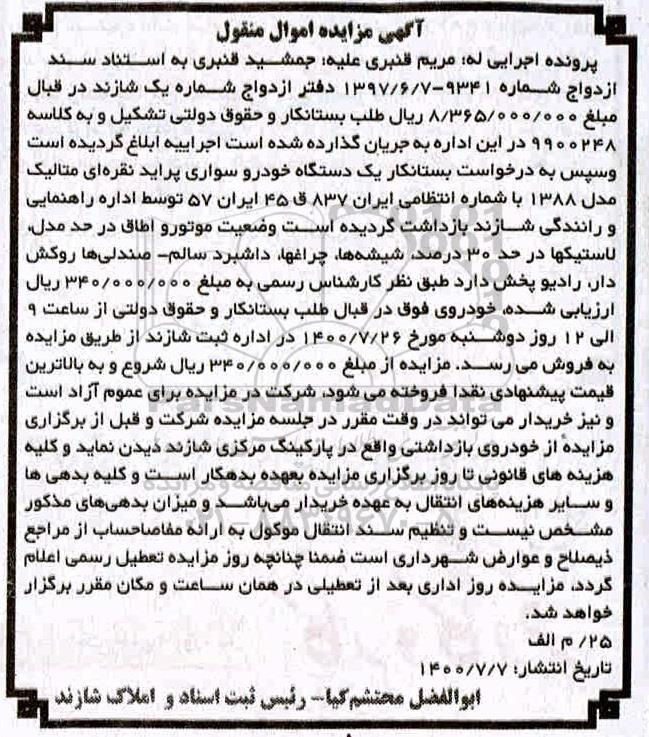 آگهی مزایده اموال منقول
پرونده اجرایی له: مریم قنبری علیه: جمشید قنبری به استناد سند
ازدواج شماره ۹۳۴۱-۱۳۹۷/۶/۷ دفتر ازدواج شماره یک شازند در قبال
مبلغ ۸/۳۶۵/۰۰۰/۰۰۰ ریال طلب بستانکار و حقوق دولتی تشکیل و به کلاسه
۹۹۰۰۲۴۸ در این اداره به جریان گذارده شده است اجراییه ابلاغ گردیده است
وسپس به درخواست بستانکار یک دستگاه خودرو سواری پراید نقره‌ای متالیک
مدل ۱۳۸۸ با شماره انتظامی ایران ۸۳۷ ق ۴۵ ایران ۵۷ توسط اداره راهنمایی
و رانندگی شازند بازداشت گردیده است وضعیت موتورو اطاق در حد مدل،
لاستیکها در حد ۳۰ درصد، شیشه‌ها، چراغها، داشبرد سالم- صندلی‌ها روکش
دار، رادیو پخش دارد طبق نظر کارشناس رسمی به مبلغ ۳۴۰/۰۰۰/۰۰۰ ریال
ارزیابی شده، خودروی فوق در قبال طلب بستانکار و حقوق دولتی از ساعت ۹
الی ۱۲ روز دوشنبه مورخ ۱۴۰۰/۷/۲۶ در اداره ثبت شازند از طریق مزایده
به فروش می رسد. مزایده از مبلغ ۳۴۰/۰۰۰/۰۰۰ ریال شروع و به بالاترین
قیمت پیشنهادی نقدا فروخته می شود، شرکت در مزایده برای عموم آزاد است
و نیز خریدار می تواند در وقت مقرر در جلسه مزایده شرکت و قبل از برگزاری
مزایده از خودروی بازداشتی واقع در پارکینگ مرکزی شازند دیدن نماید و کلیه
هزینه های قانونی تا روز برگزاری مزایده بعهده بدهکار است و کلیه بدهی ها
و سایر هزینه‌های انتقال به عهده خریدار می‌باشد و میزان بدهی‌های مذکور
مشخص نیست و تنظیم سند انتقال موکول به ارائه مفاصاحساب از مراجع
ذیصلاح و عوارض شهرداری است ضمنا چنانچه روز مزایده تعطیل رسمی اعلام
گردد، مزایده روز اداری بعد از تعطیلی در همان ساعت و مکان مقرر برگزار
خواهد شد.
۲۵/ م الف
تاریخ انتشار: ۱۴۰۰/۷/۷
ابوالفضل محتشم‌کیا- رئیس ثبت اسناد و املاک شازند
ParsNamadData